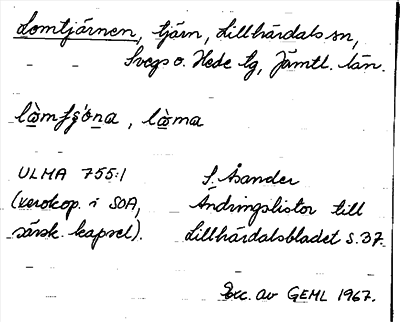 Lomtjärnen, tjärn, Lillhärdals sn,
Svegs o. Hede tg, Jämtl. län.
, lòma
ULMA 755:1 S. Åsander
(xerokop. i SOA, Ändringslistor till
särsk. kapsel). Lillhärdalsbladet s. 37.
Exc. av GEML 1967.